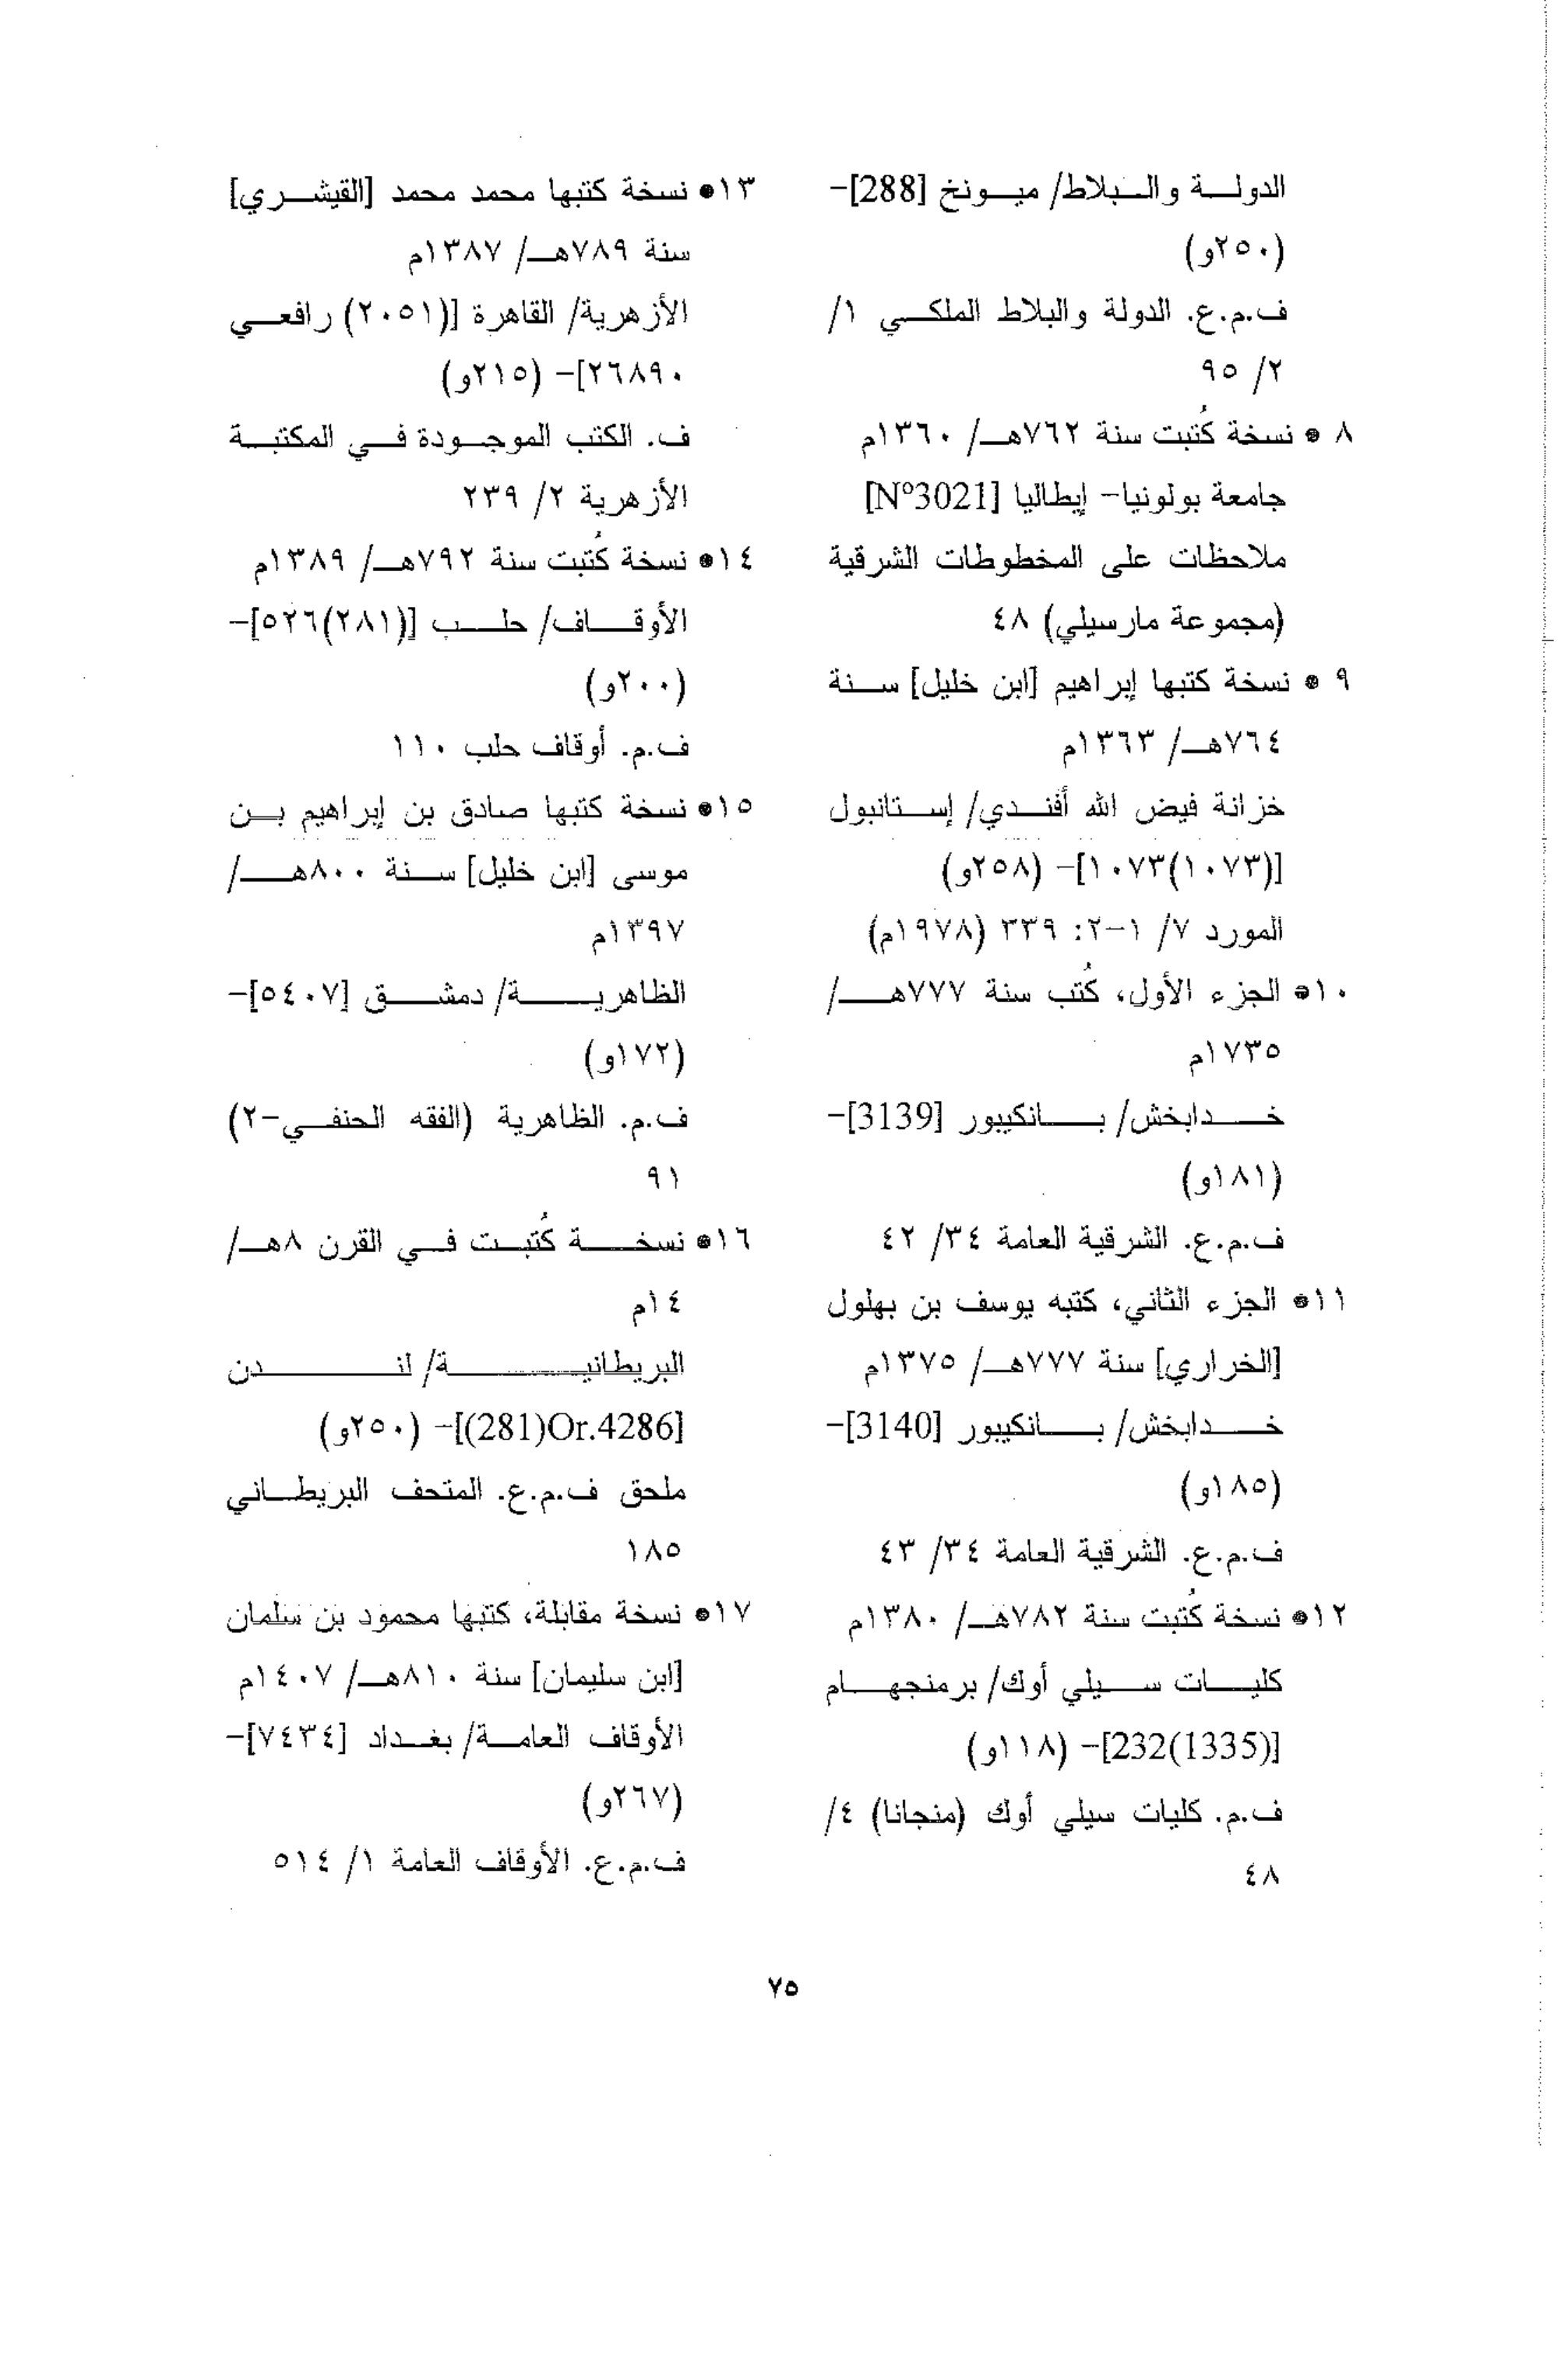 الدولة والبلاط/ ميونخ [288]-
(٢٥٠و)
ف.م.ع. الدولة والبلاط الملكي ١/
٢/ ٩٥
٨ • نسخة كُتبت سنة ٧٦٢هـ/ ١٣٦٠م
جامعة بولونيا- إيطاليا [N°3021]
ملاحظات على المخطوطات الشرقية
(مجموعة مارسيلي) ٤٨
٩ • نسخة كتبها إبراهيم [ابن خليل] سنة
٧٦٤هـ/ ١٣٦٣م
خزانة فيض الله أفندي/ إستانبول
[(١٠٧٣)١٠٧٣]- (٢٥٨و)
المورد ٧/ ١-٢: ٣٣٩ (١٩٧٨م)
١٠• الجزء الأول، كُتب سنة ٧٧٧هـ/
١٧٣٥م
خدابخش/ بانكيبور [3139]-
(١٨١و)
ف.م.ع. الشرقية العامة ٣٤/ ٤٢
١١• الجزء الثاني، كتبه يوسف بن بهلول
[الخراري] سنة ٧٧٧هـ/ ١٣٧٥م
خدابخش/ بانكيبور [3140]-
(١٨٥و)
ف.م.ع. الشرقية العامة ٣٤/ ٤٣
١٢• نسخة كُتبت سنة ٧٨٢هـ/ ١٣٨٠م
كليات سيلي أوك/ برمنجهام
[(1335)232]- (١١٨و)
ف.م. كليات سيلي أوك (منجانا) ٤/
٤٨
١٣• نسخة كتبها محمد محمد [القيشري]
سنة ٧٨٩هـ/ ١٣٨٧م
الأزهرية/ القاهرة [(٢٠٥١) رافعي
٢٦٨٩٠]- (٢١٥و)
ف. الكتب الموجودة في المكتبة
الأزهرية ٢/ ٢٣٩
١٤• نسخة كُتبت سنة ٧٩٢هـ/ ١٣٨٩م
الأوقاف/ حلب [(٢٨١)٥٢٦]-
(٢٠٠و)
ف.م. أوقاف حلب ١١٠
١٥• نسخة كتبها صادق بن إبراهيم بن
موسى [ابن خليل] سنة ٨٠٠هـ/
١٣٩٧م
الظاهرية/ دمشق [٥٤٠٧]-
(١٧٢و)
ف.م. الظاهرية (الفقه الحنفي-٢)
٩١
١٦• نسخة كُتبت في القرن ٨هـ/
١٤م
البريطانية/ لندن
[(281)Or.4286]- (٢٥٠و)
ملحق ف.م.ع. المتحف البريطاني
١٨٥
١٧• نسخة مقابلة، كتبها محمود بن سلمان
[ابن سليمان] سنة ٨١٠هـ/ ١٤٠٧م
الأوقاف العامة/ بغداد [٧٤٣٤]-
(٢٦٧و)
ف.م.ع. الأوقاف العامة ١/ ٥١٤
٧٥